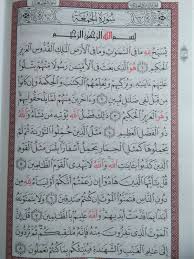 سُورَةُ الجُمُعَةِ
بِسْمِ اللَّهِ الرَّحْمَٰنِ الرَّحِيمِ
يُسَبِّحُ لِلَّهِ مَا فِي السَّمَٰوَٰتِ وَمَا فِي الْأَرْضِ الْمَلِكِ الْقُدُّوسِ الْعَزِيزِ
الْحَكِيمِ ١ هُوَ الَّذِي بَعَثَ فِي الْأُمِّيِّينَ رَسُولًا مِّنْهُمْ يَتْلُوا عَلَيْهِمْ
ءَايَٰتِهِ وَيُزَكِّيهِمْ وَيُعَلِّمُهُمُ الْكِتَٰبَ وَالْحِكْمَةَ وَإِن كَانُوا
مِن قَبْلُ لَفِي ضَلَٰلٍ مُّبِينٍ ٢ وَءَاخَرِينَ مِنْهُمْ لَمَّا يَلْحَقُوا بِهِمْ
وَهُوَ الْعَزِيزُ الْحَكِيمُ ٣ ذَٰلِكَ فَضْلُ اللَّهِ يُؤْتِيهِ مَن يَشَاءُ وَاللَّهُ
ذُو الْفَضْلِ الْعَظِيمِ ٤ مَثَلُ الَّذِينَ حُمِّلُوا التَّوْرَىٰةَ ثُمَّ لَمْ
يَحْمِلُوهَا كَمَثَلِ الْحِمَارِ يَحْمِلُ أَسْفَارًا بِئْسَ مَثَلُ الْقَوْمِ
الَّذِينَ كَذَّبُوا بِـَٔايَٰتِ اللَّهِ وَاللَّهُ لَا يَهْدِي الْقَوْمَ الظَّٰلِمِينَ ٥
قُلْ يَٰأَيُّهَا الَّذِينَ هَادُوا إِن زَعَمْتُمْ أَنَّكُمْ أَوْلِيَاءُ لِلَّهِ مِن دُونِ
النَّاسِ فَتَمَنَّوُا الْمَوْتَ إِن كُنتُمْ صَٰدِقِينَ ٦ وَلَا يَتَمَنَّوْنَهُ أَبَدًا
بِمَا قَدَّمَتْ أَيْدِيهِمْ وَاللَّهُ عَلِيمٌ بِالظَّٰلِمِينَ ٧ قُلْ إِنَّ الْمَوْتَ
الَّذِي تَفِرُّونَ مِنْهُ فَإِنَّهُ مُلَٰقِيكُمْ ثُمَّ تُرَدُّونَ
إِلَىٰ عَٰلِمِ الْغَيْبِ وَالشَّهَٰدَةِ فَيُنَبِّئُكُم بِمَا كُنتُمْ تَعْمَلُونَ ٨